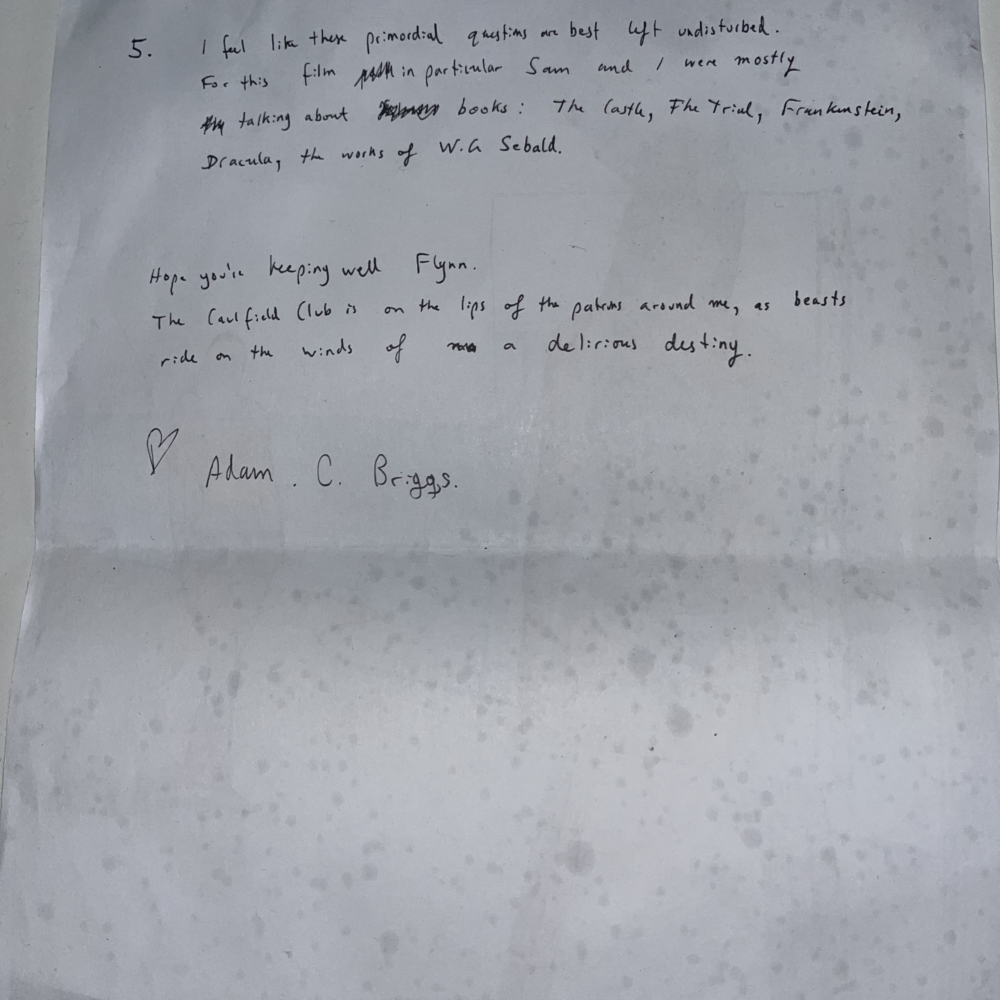 5. I feel like these primordial questions are best left undisturbed.
For this film in particular Sam and I were mostly
talking about books: The Castle, The Trial, Frankenstein,
Dracula, the works of W.G Sebald.
Hope you're keeping well Flynn.
The Caulfield Club is on the lips of the patrons around me, as beasts
ride on the winds of a delirious destiny.
Adam. C. Briggs.